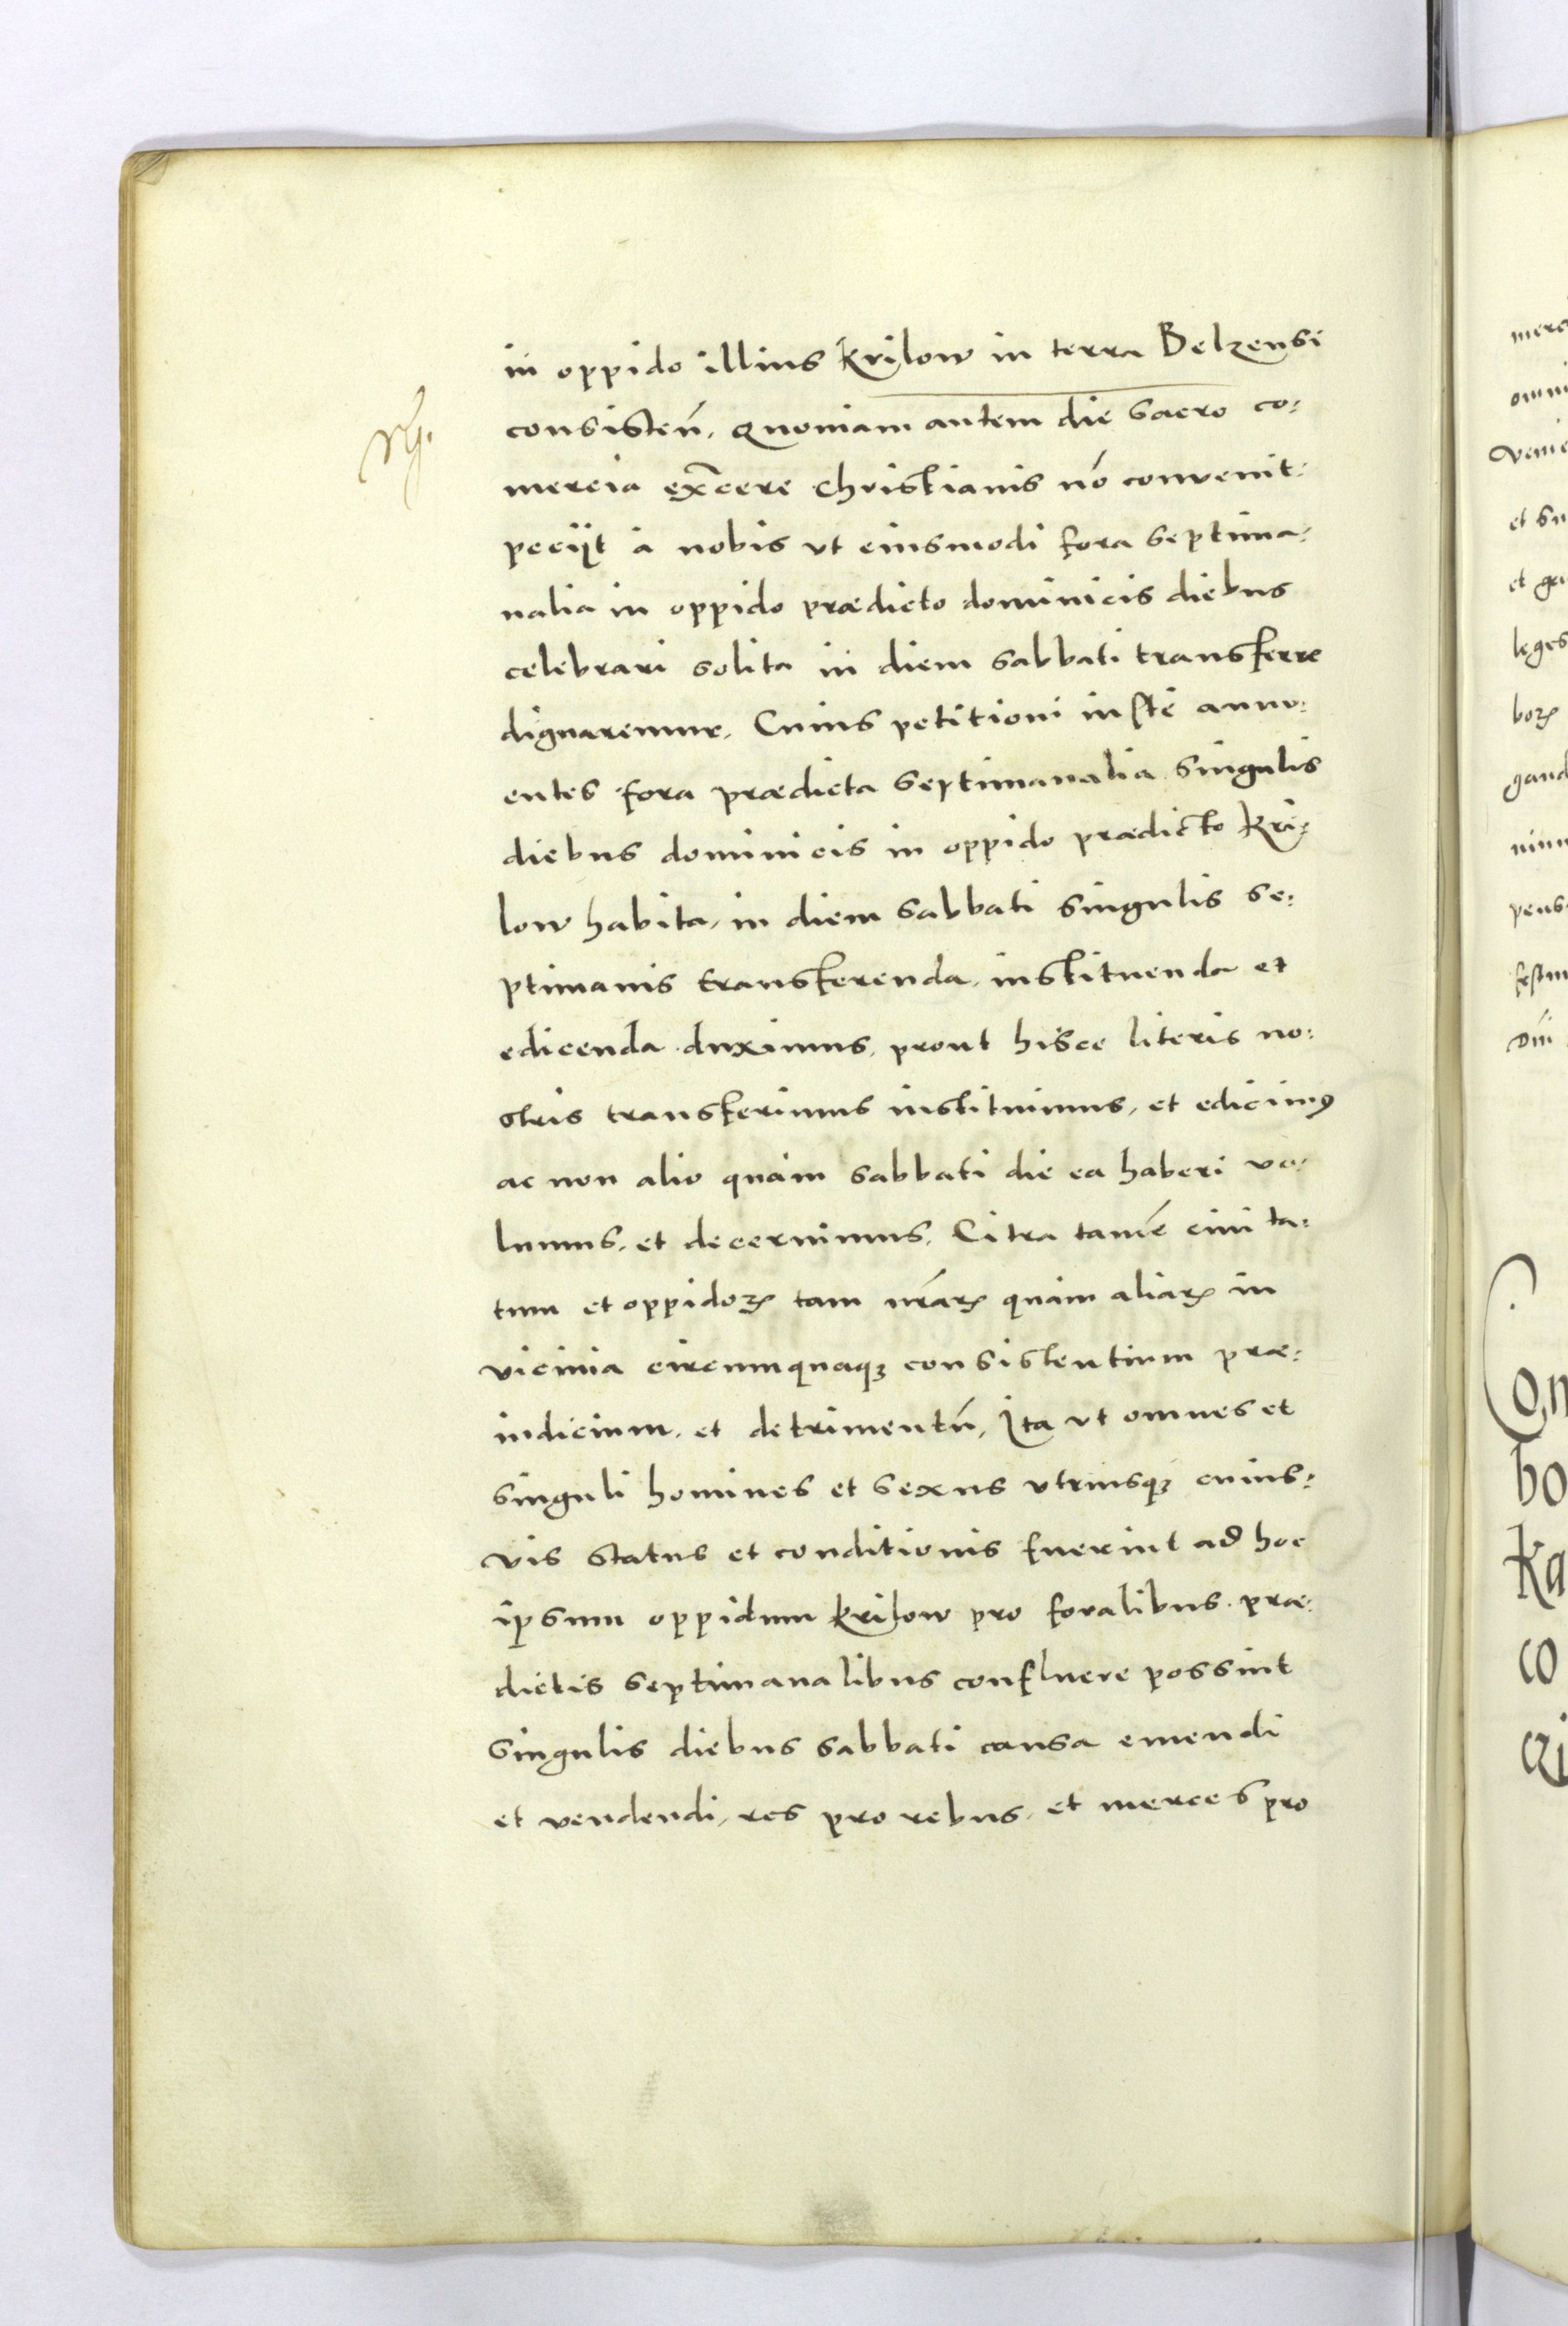 in oppido illius Krilow in terra Belzensi
consisteñ. Quoniam autem die sacro co:
mercia ex̃cere Christianis nõ convenit:
peciit à nobis vt eiusmodi fora septima:
nalia in oppido prædicto dominicis diebus
celebrari solita in diem sabbati transferre
dignaremur. Cuius petitioni iuste annu:
entes fora prædicta septimanalia singulis
diebus dominicis in oppido prædicto Kri:
low habita, in diem sabbati singulis se:
ptimanis transferenda, instituenda et
edicenda duximus, prout hisce literis no:
stris transferimus instituimus, et edicimꝰ
ac non alio quàm sabbati die ea haberi vo:
lumus, et decernimus. Citra tamẽ ciuita:
tum et oppidoꝝ tam nr̃aꝝ quàm aliaꝝ in
vicinia circumquaqꝫ consistentium præ:
iudicium, et detrimentũ. Ita vt omnes et
singuli homines et sexus vtriusqꝫ cuius:
vis status et conditionis fuerint ad hoc
ipsum oppidum Krilow pro foralibus præ:
dictis septimanalibus confluere possint
singulis diebus sabbati causa emendi
et vendendi, res pro rebus, et merces pro
merc
omni
venie
et su
et ga
leges
boꝝ
gaud
pens
Con
bo
ka
co